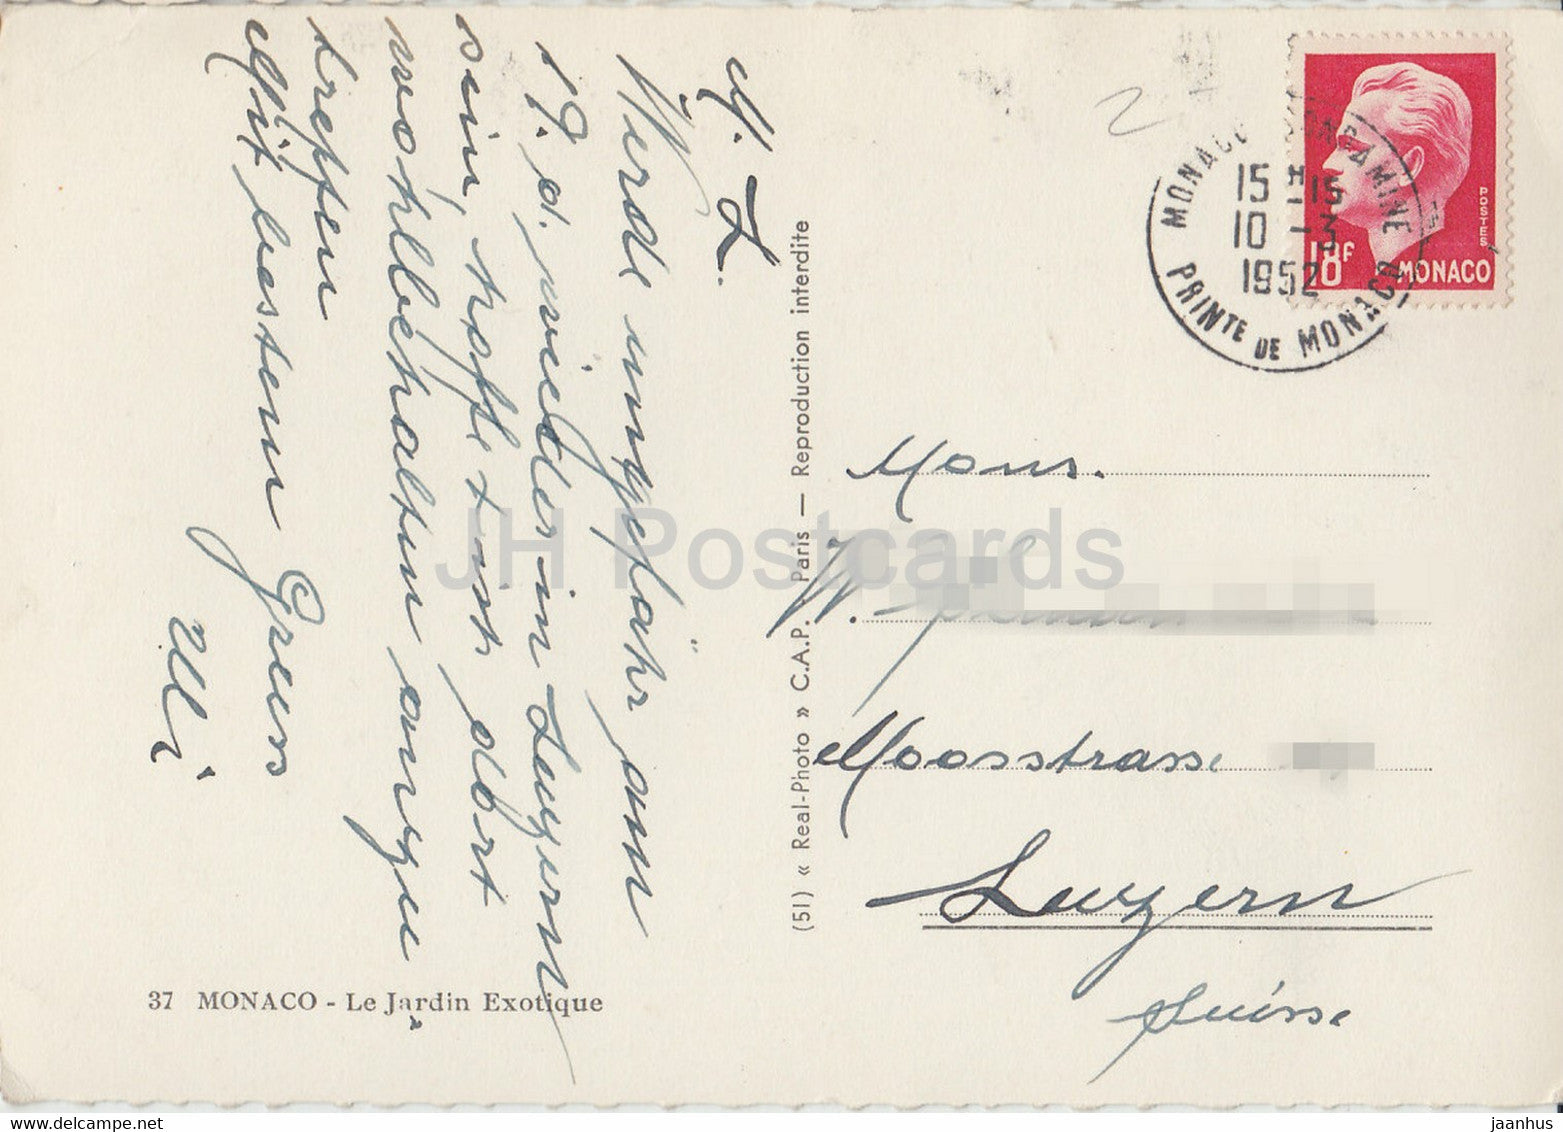 M. L.
Werde ungefähr am
19. d. wieder in Luzern
sein, hoffe Euch dort
wohlbehalten anzu-
treffen
Mit bestem Gruss
Ulli
(51) « Real-Photo » C.A.P. Paris — Reproduction interdite
37 MONACO - Le Jardin Exotique
2
MONACO CONDAMINE
15 H -15
10 -3
1952
PRINTE DE MONACO
POSTES
18F
MONACO
Mons.
W.
Moosstrasse
Luzern
Suisse
JH Postcards
delcampe.net
jaanhus